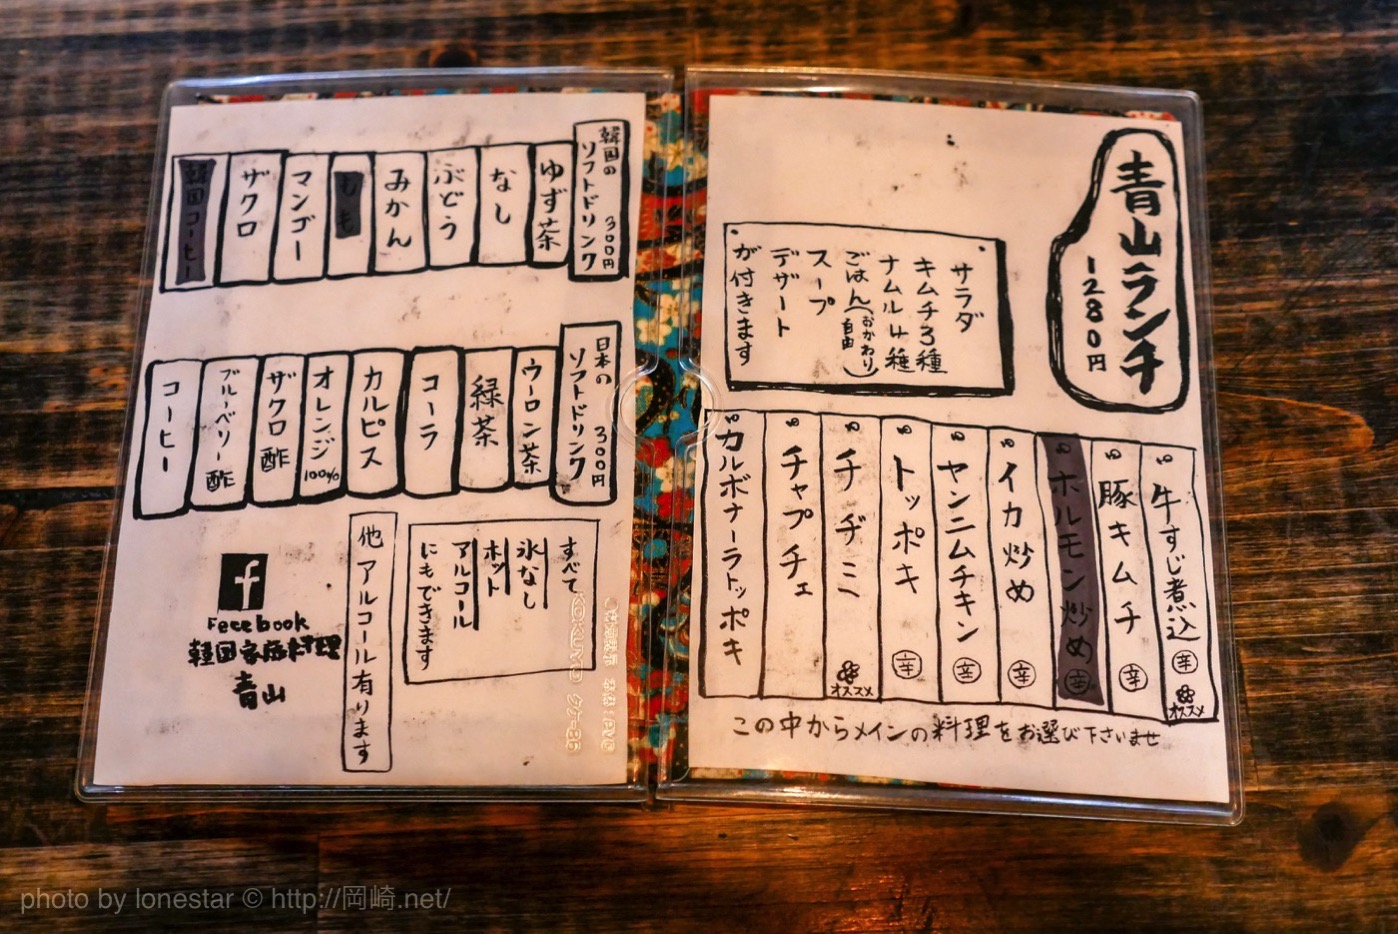 青山ランチ
1280円
サラダ
キムチ3種
ナムル4種
ごはん(おかわり自由)
スープ
デザート
が付きます
牛すじ煮込 辛 オススメ
豚キムチ 辛
ホルモン炒め 辛
イカ炒め 辛
ヤンニムチキン 辛
トッポキ 辛
チヂミ オススメ
チャプチェ
カルボナーラトッポキ
この中からメインの料理をお選び下さいませ
韓国の
ソフトドリンク
300円
ゆず茶
なし
ぶどう
みかん
もも
マンゴー
ザクロ
韓国コーヒー
日本の
ソフトドリンク
300円
ウーロン茶
緑茶
コーラ
カルピス
オレンジ100%
ザクロ酢
ブルーベリー酢
コーヒー
すべて
氷なし
ホット
アルコール
にもできます
他アルコール有ります
f
Fecebook
韓国家庭料理
青山
KOKUYO クケ-85
photo by lonestar © http://岡崎.net/